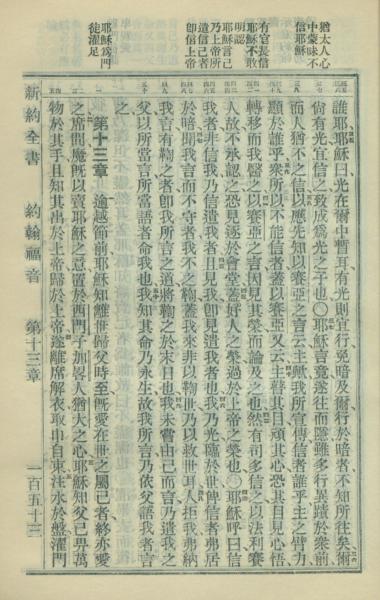 猶太人心
中蒙昧不
信耶穌
有官長信
耶穌不敢
明認
耶穌言己
乃上帝所
遣信己者
卽信上帝
耶穌爲門
徒濯足
誰耶耶穌曰光在爾中暫耳有光則宜行免暗及爾行於暗者不知所往矣爾
尙有光宜信之致成爲光之子也〇耶穌言竟遂往而隱雖多行異蹟於衆前
而人猶不之信以應先知以賽亞之言云主歟我所宣傳信者誰乎主之臂力
顯於誰乎衆所以不能信者蓋以賽亞又云主瞽其目頑其心恐其目見心悟
轉移而我醫之以賽亞之言因見其榮而論及之也然有司多信之以法利賽
人故不承認之恐見逐於會堂蓋好人之榮過於上帝之榮也〇耶穌呼曰信
我者非信我乃信遣我者且見我卽見遣我者也我乃光臨於世俾信者弗居
於暗聞我言而不守者我不之鞫蓋我來非以鞫世乃以救世耳人拒我弗納
我言有鞫之者卽我所言之道將鞫之於末日也我未嘗由己而言乃遣我之
父以所當言所當語者命我也我知其命乃永生故我所言乃依父語我者言
之
第十三章 逾越節前耶穌知離世歸父時至旣愛在世之屬己者終亦愛
之席間魔旣以賣耶穌之意置於西門子加畧人猶大之心耶穌知父已畀萬
物於其手且知其出於上帝歸於上帝遂離席解衣取巾自束注水於盤濯門
新約全書 約翰福音 第十三章 一百五十三